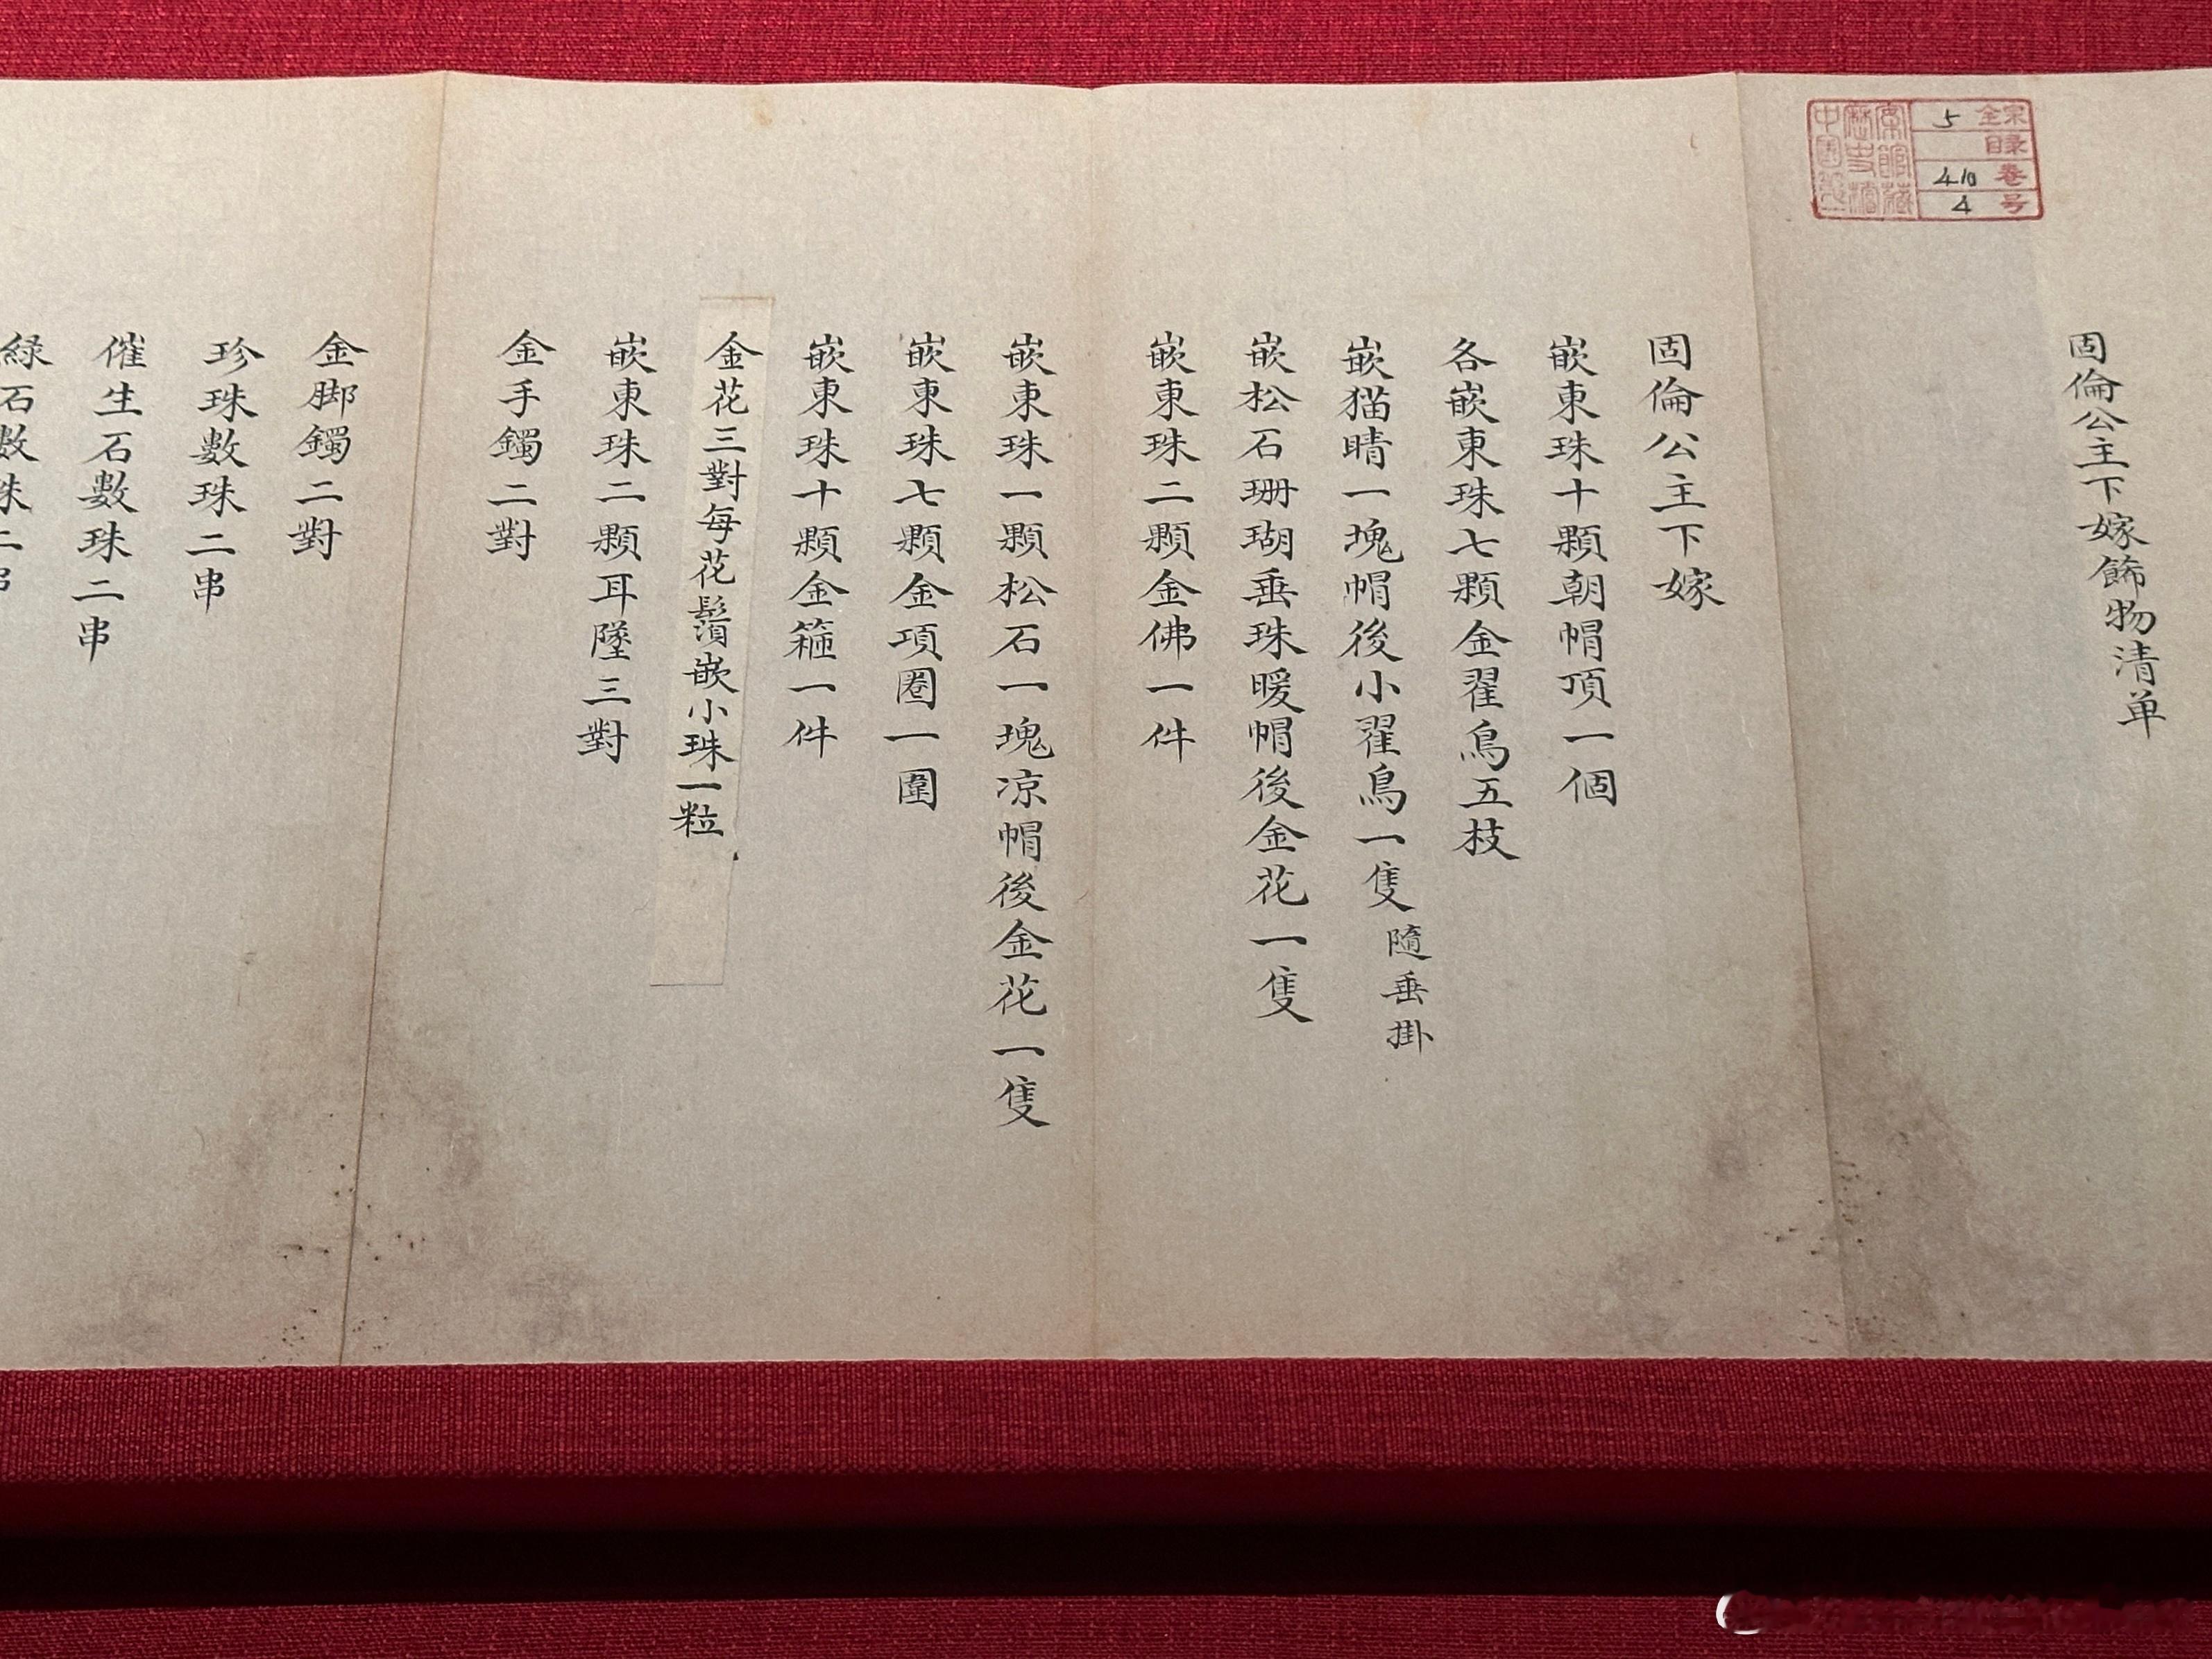 固倫公主下嫁餙物清单
全宗 5
目录
卷 410
号 4
中國第一歷史檔案館藏
固倫公主下嫁
嵌東珠十顆朝帽頂一個
各嵌東珠七顆金翟鳥五枝
嵌猫睛一塊帽後小翟鳥一隻隨垂掛
嵌松石珊瑚垂珠暖帽後金花一隻
嵌東珠二顆金佛一件
嵌東珠一顆松石一塊凉帽後金花一隻
嵌東珠七顆金項圈一圍
嵌東珠十顆金箍一件
金花三對每花鬚嵌小珠一粒
嵌東珠二顆耳墜三對
金手鐲二對
金脚鐲二對
珍珠數珠二串
催生石數珠二串
緑石數珠二串